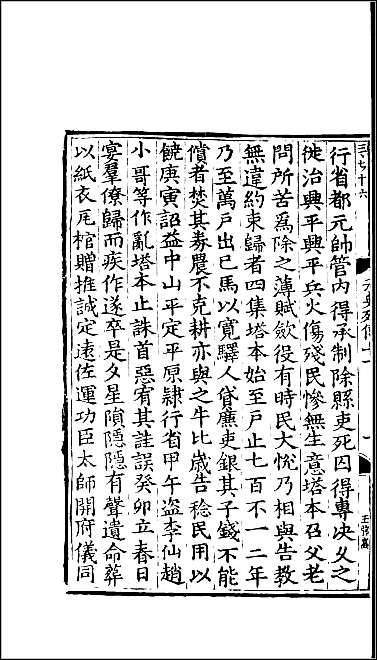 行省都元帥管内得承制除縣吏死囚得專决乆之
徙治興平興平兵火傷殘民慘無生意塔本召父老
問所苦爲除之薄賦斂役有時民大悅乃相與告教
無違約束歸者四集塔本始至戸止七百不一二年
乃至萬戸出已馬以寬驛人貸廉吏銀其子錢不能
償者焚其劵農不克耕亦與之牛比歲告稔民用以
饒庚寅詔益中山平定平原隷行省甲午盗李仙趙
小哥等作亂塔本止誅首惡宥其詿誤癸卯立春日
宴羣僚歸而疾作遂卒是夕星隕隱隱有聲遺命葬
以紙衣瓦棺贈推誠定遠佐運功臣太師開府儀同